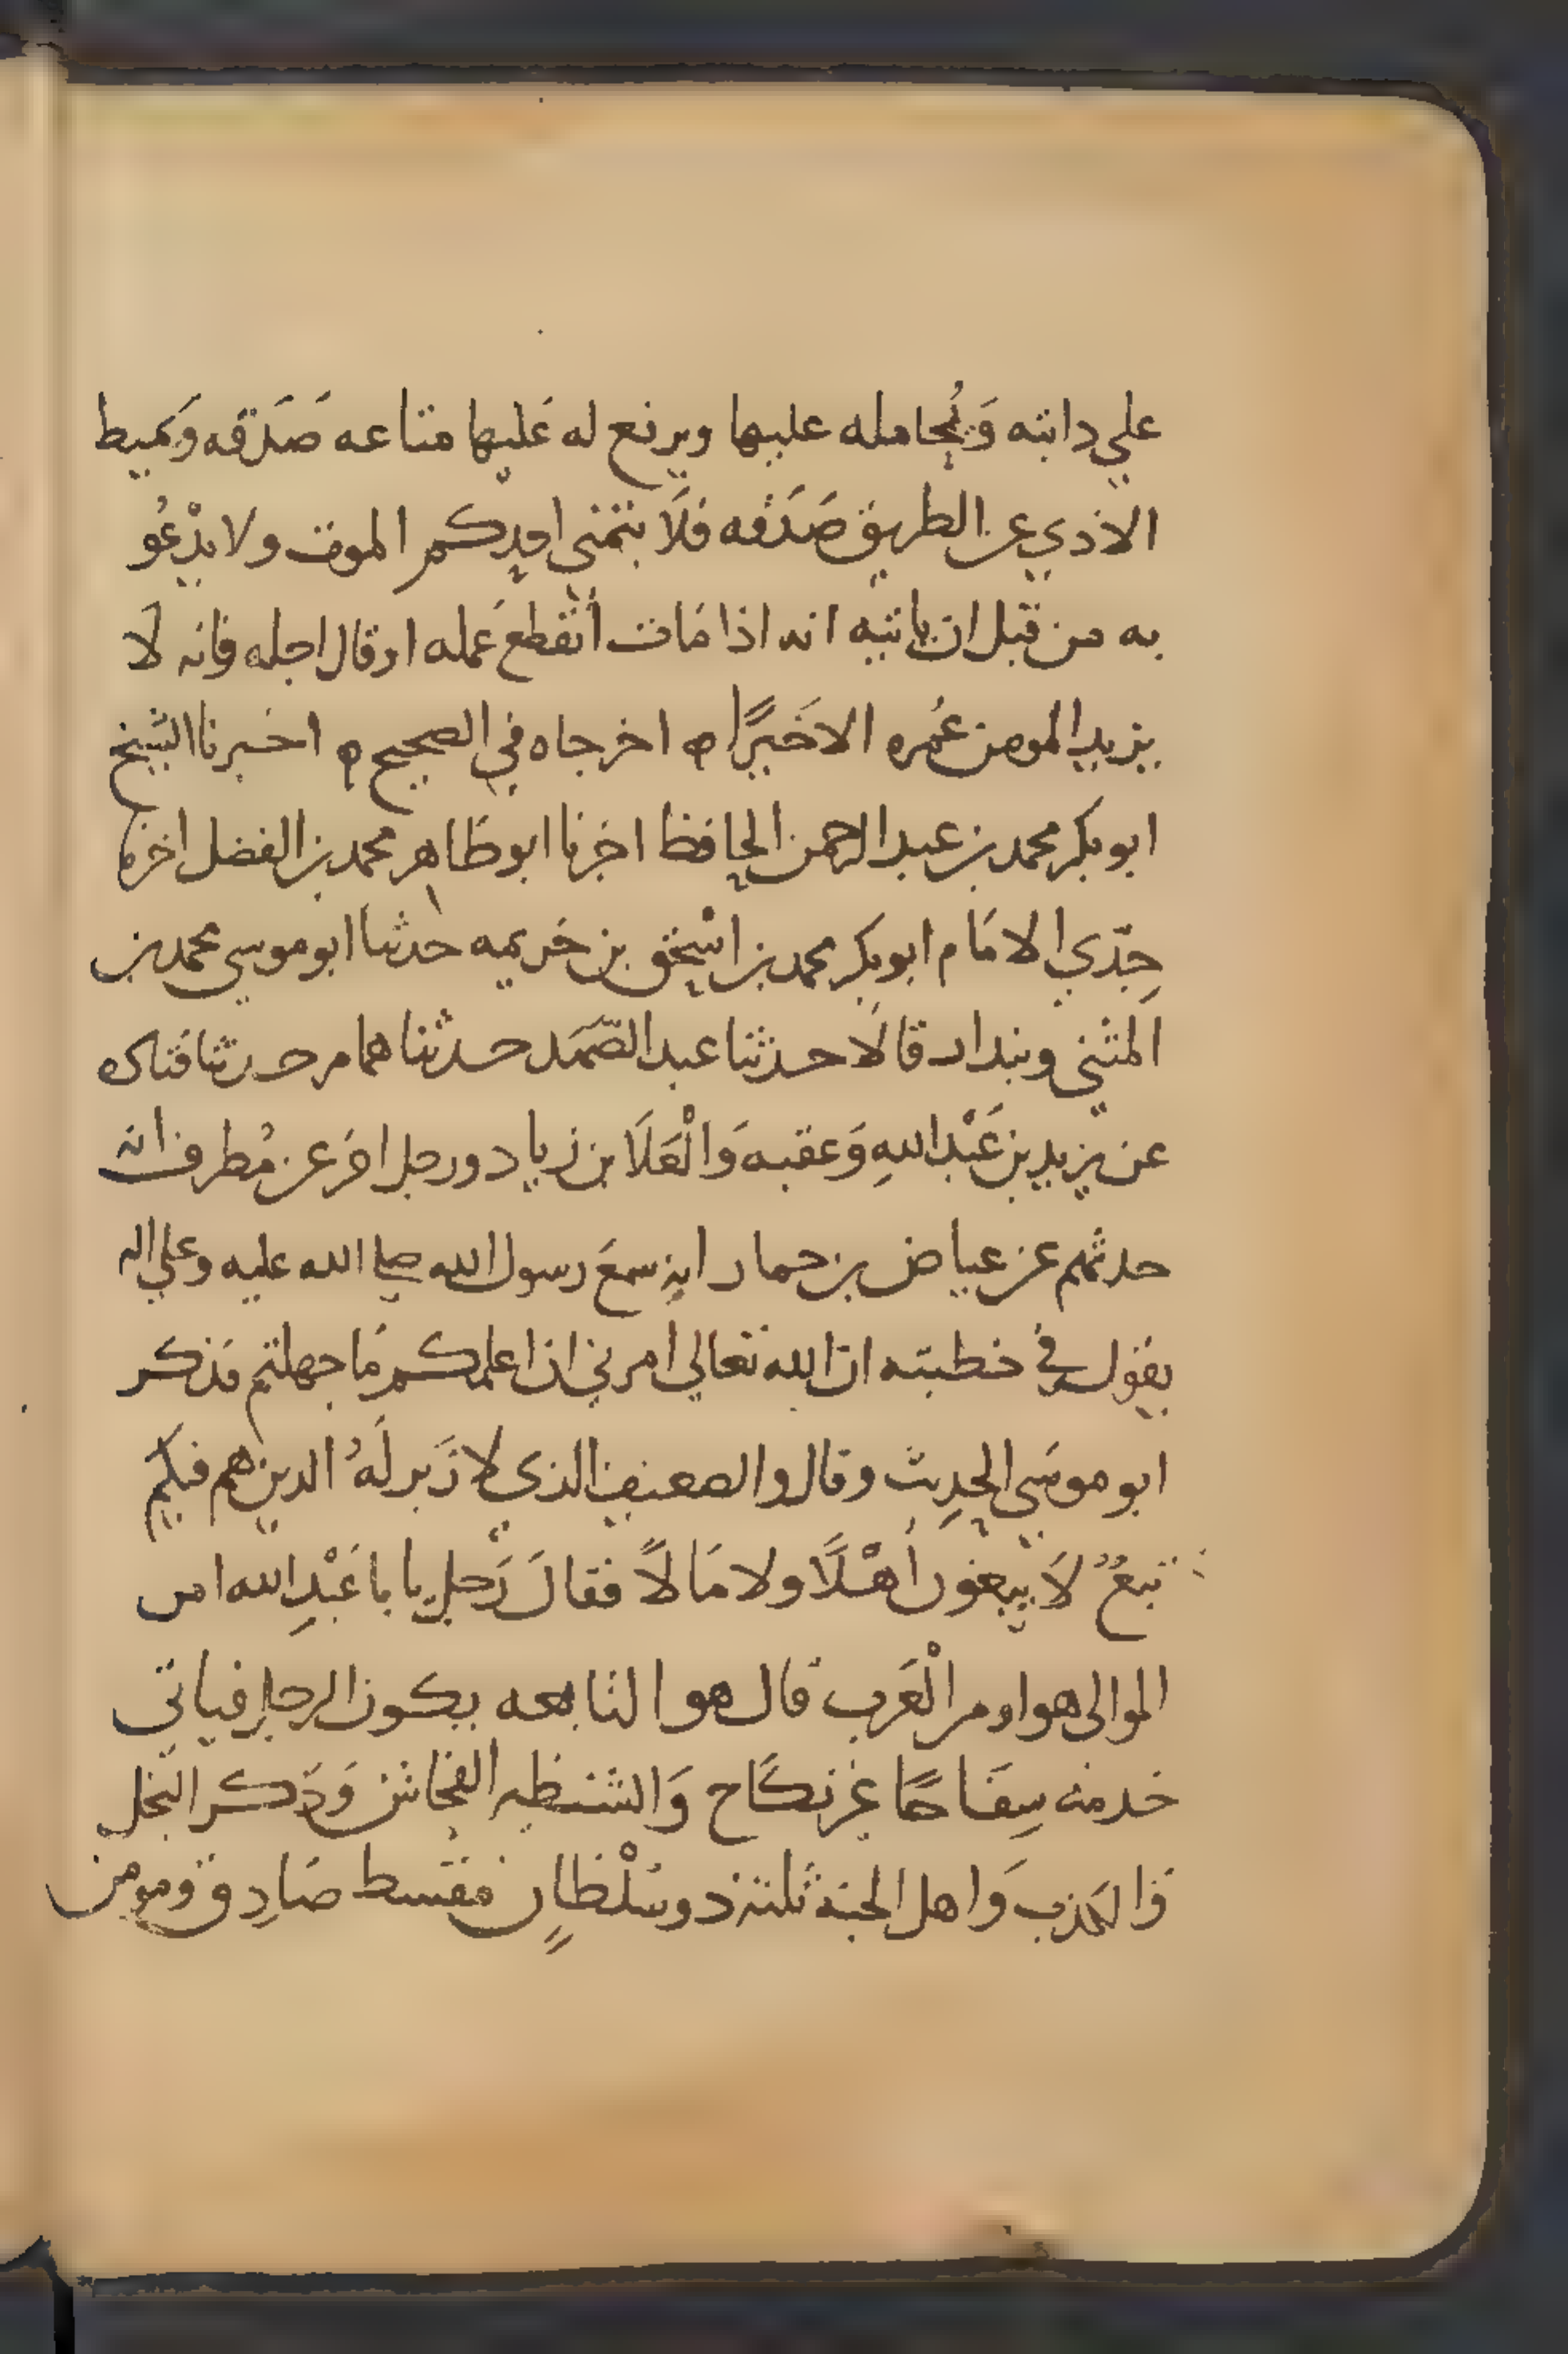 علي دابته وَيُحَامله عليها ويرفع له عَليها متاعه صَدَقه وَيميط
الاذي عن الطريق صَدَقه فلَا يتمني احدكم الموت ولا يدْعُو
به من قبل ان ياتيه انه اذا مَات أنقطع عَمله او قال اجله فانه لا
يزيد المومن عُمره الا خَيرًا ه اخرجاه في الصحيح ه اخبرنا الشيخ
ابو بكر محمد بن عبد الرحمن الحافظ اخبرنا ابو طاهر محمد بن الفضل اخبرنا
جِدّي الامَام ابو بكر محمد بن اسْحق بن خزيمه حدثنا ابو موسي محمد بن
المثني وبندار قالَا حدثنا عبد الصّمَد حدثنا همام حدثنا قتاده
عن يزيد بن عَبْد اللهِ وَعقبه وَالْعَلَا بن زياد ورجل اخر عن مُطرف انه
حدثهم عن عياض بن حمار انه سمعَ رسول الله صلى الله عليه وعلي اله
يقول في خطبته ان الله تعالي امرني ان اعلمكم مَا جهلتم فذكر
ابو موسَي الحدِيث وقال والضعيف الذي لا زَبر لَهُ الذين هم فيكم
تبعٌ لَا يبغون أهْلًا ولا مَالاً فقالَ رَجل يا با عَبْدِ الله امن
الموالى هو او من الْعَرب قال هو التابعه يكون الرجل فياتي
خدمه سِفَاحًا غير نكَاح وَالشنظير الفحاش وَذَكر البخل
وَالكذب وَاهل الجنة ثلثة ذو سُلْطانٍ مقسط صَادِق ومومن